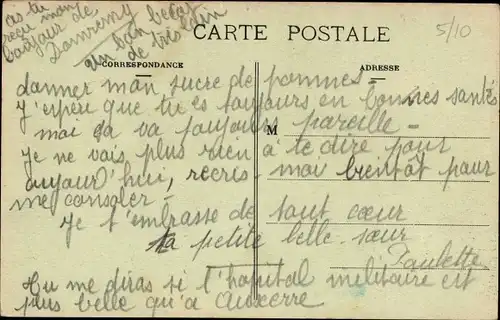 as tu
reçu mon
bonjour de
Domrémy
un bon bécot
de
CARTE POSTALE
5/10
CORRESPONDANCE
ADRESSE
donner mon sucre de pommes -
J'espère que tu es toujours en bonnes santé
moi ça va toujours pareille -
M
Je ne vais plus rien à te dire pour
aujour'hui, recris - moi bientôt pour
me consoler -
Je t'embrasse de tout cœur
ta petite belle-sœur
Paulette
Tu me diras si l'hôpital militaire est
plus belle qu'a Auxerre